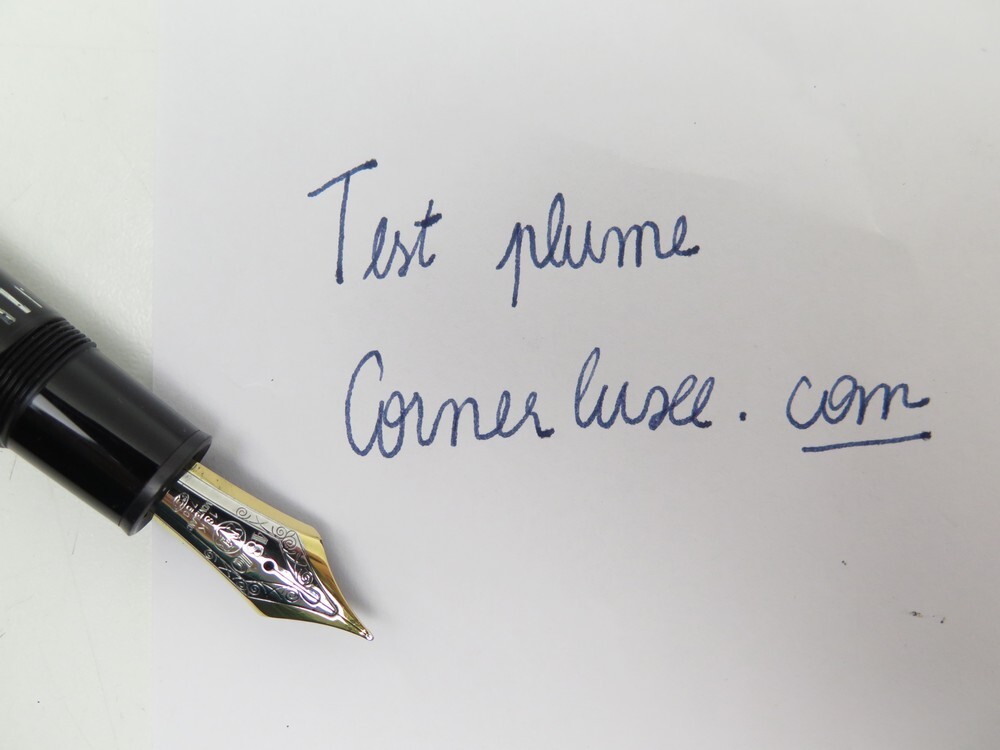 Test plume
Corner luxe. com